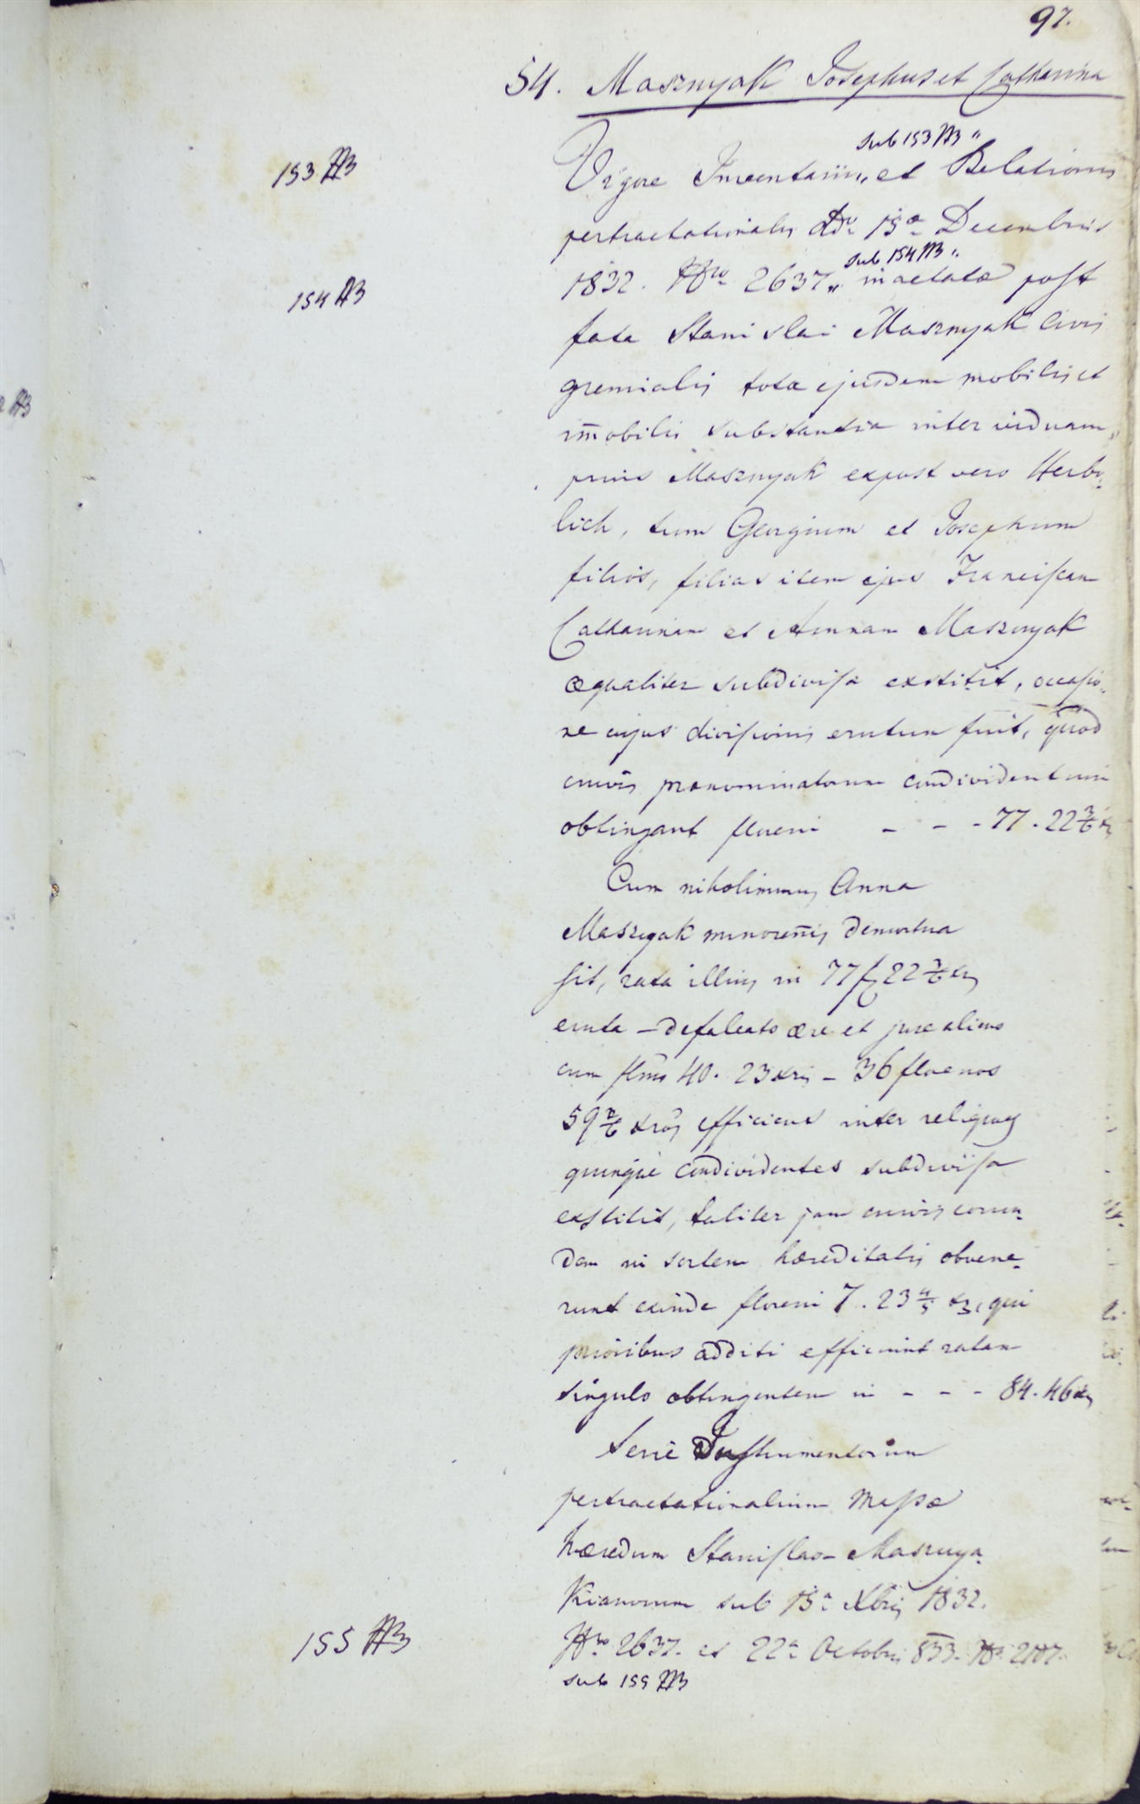 97.
54. Masznyak Josephus et Catharina
sub 153
153
Vigore Inventarii et Relationis
pertractationalis 15a Decembris
sub 154
154
1832. Nro 2637 inactatae post
fata Stanislai Masznyak civis
gremialis tota ejusdem mobilis et
im̄obilis substantia inter viduam,
prius Masznyak expost vero Herb-
lich, tum Georgium et Josephum
filios, filias item ejus Franciscam
Catharinam et Annam Masznyak
aequaliter subdivisa exstitit, occasio-
ne cujus divisionis erutum fuit, quod
cuivis praenominatorum condividentium
obtingant floreni - - - 77. 22 3/6 xr
Cum nihilominus Anna
Masznyak minoren̄is demortua
sit, rata illius in 77 f 22 3/6 xr
eruta – defalcato aere et jure alieno
cum flnis 40. 23 xris – 36 florenos
59 3/6 xros efficiens inter reliquos
quinque condividentes subdivisa
exstitit, taliter jam cuivis eorun-
dem in sortem haereditatis obvene-
runt exinde floreni 7. 23 4/5 xr, qui
prioribus additi efficiunt ratam
singulo obtingentem in - - - 84. 46 xr
Serie Instrumentorum
pertractationalium Massae
haeredum Stanislao-Masznya-
kianorum sub 15a Xbris 1832.
155
Nro 2637. et 22a Octobris 833. Nro
sub 155